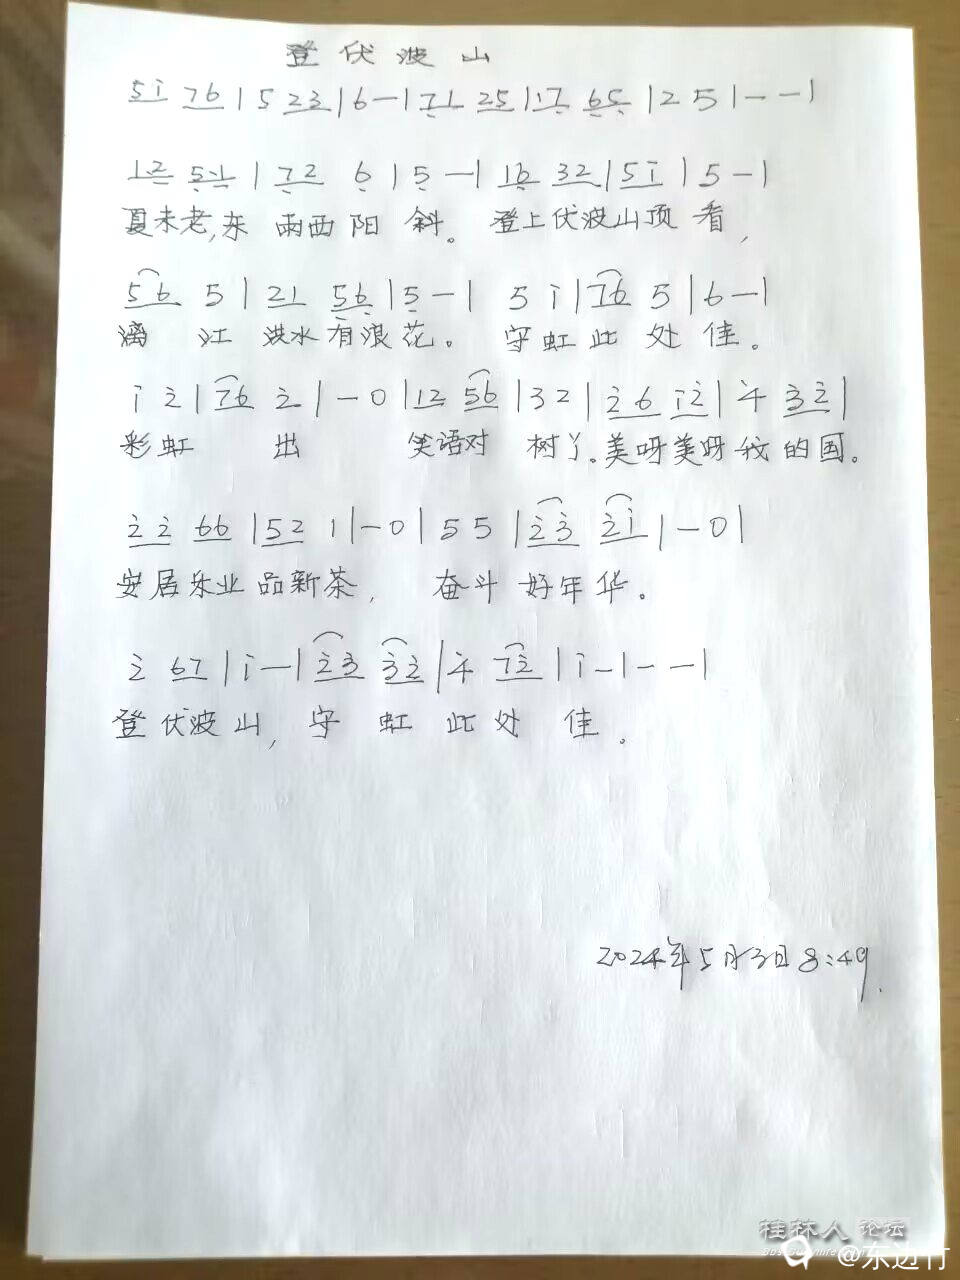 登伏波山
5i 76 | 5 23 | 6 — | 71 25 | 17 65 | 2 5 | — — |
12 51 | 72 6 | 5 — | 16 32 | 5i | 5 — |
夏未老,东雨西阳斜。登上伏波山顶看,
56 5 | 21 56 | 5 — | 5 i | 76 5 | 6 — |
漓江洪水有浪花。守虹此处佳。
i 2 | 76 2 | — 0 | 12 56 | 32 | 26 i2 | 4 32 |
彩虹出 笑语对树丫。美呀美呀我的国。
22 66 | 52 1 | — 0 | 55 | 23 2i | — 0 |
安居乐业品新茶, 奋斗好年华。
2 67 | i — | 23 32 | 4 72 | i — | — — |
登伏波山,守虹此处佳。
2024年5月3日8:49.
桂林人论坛
@东边竹